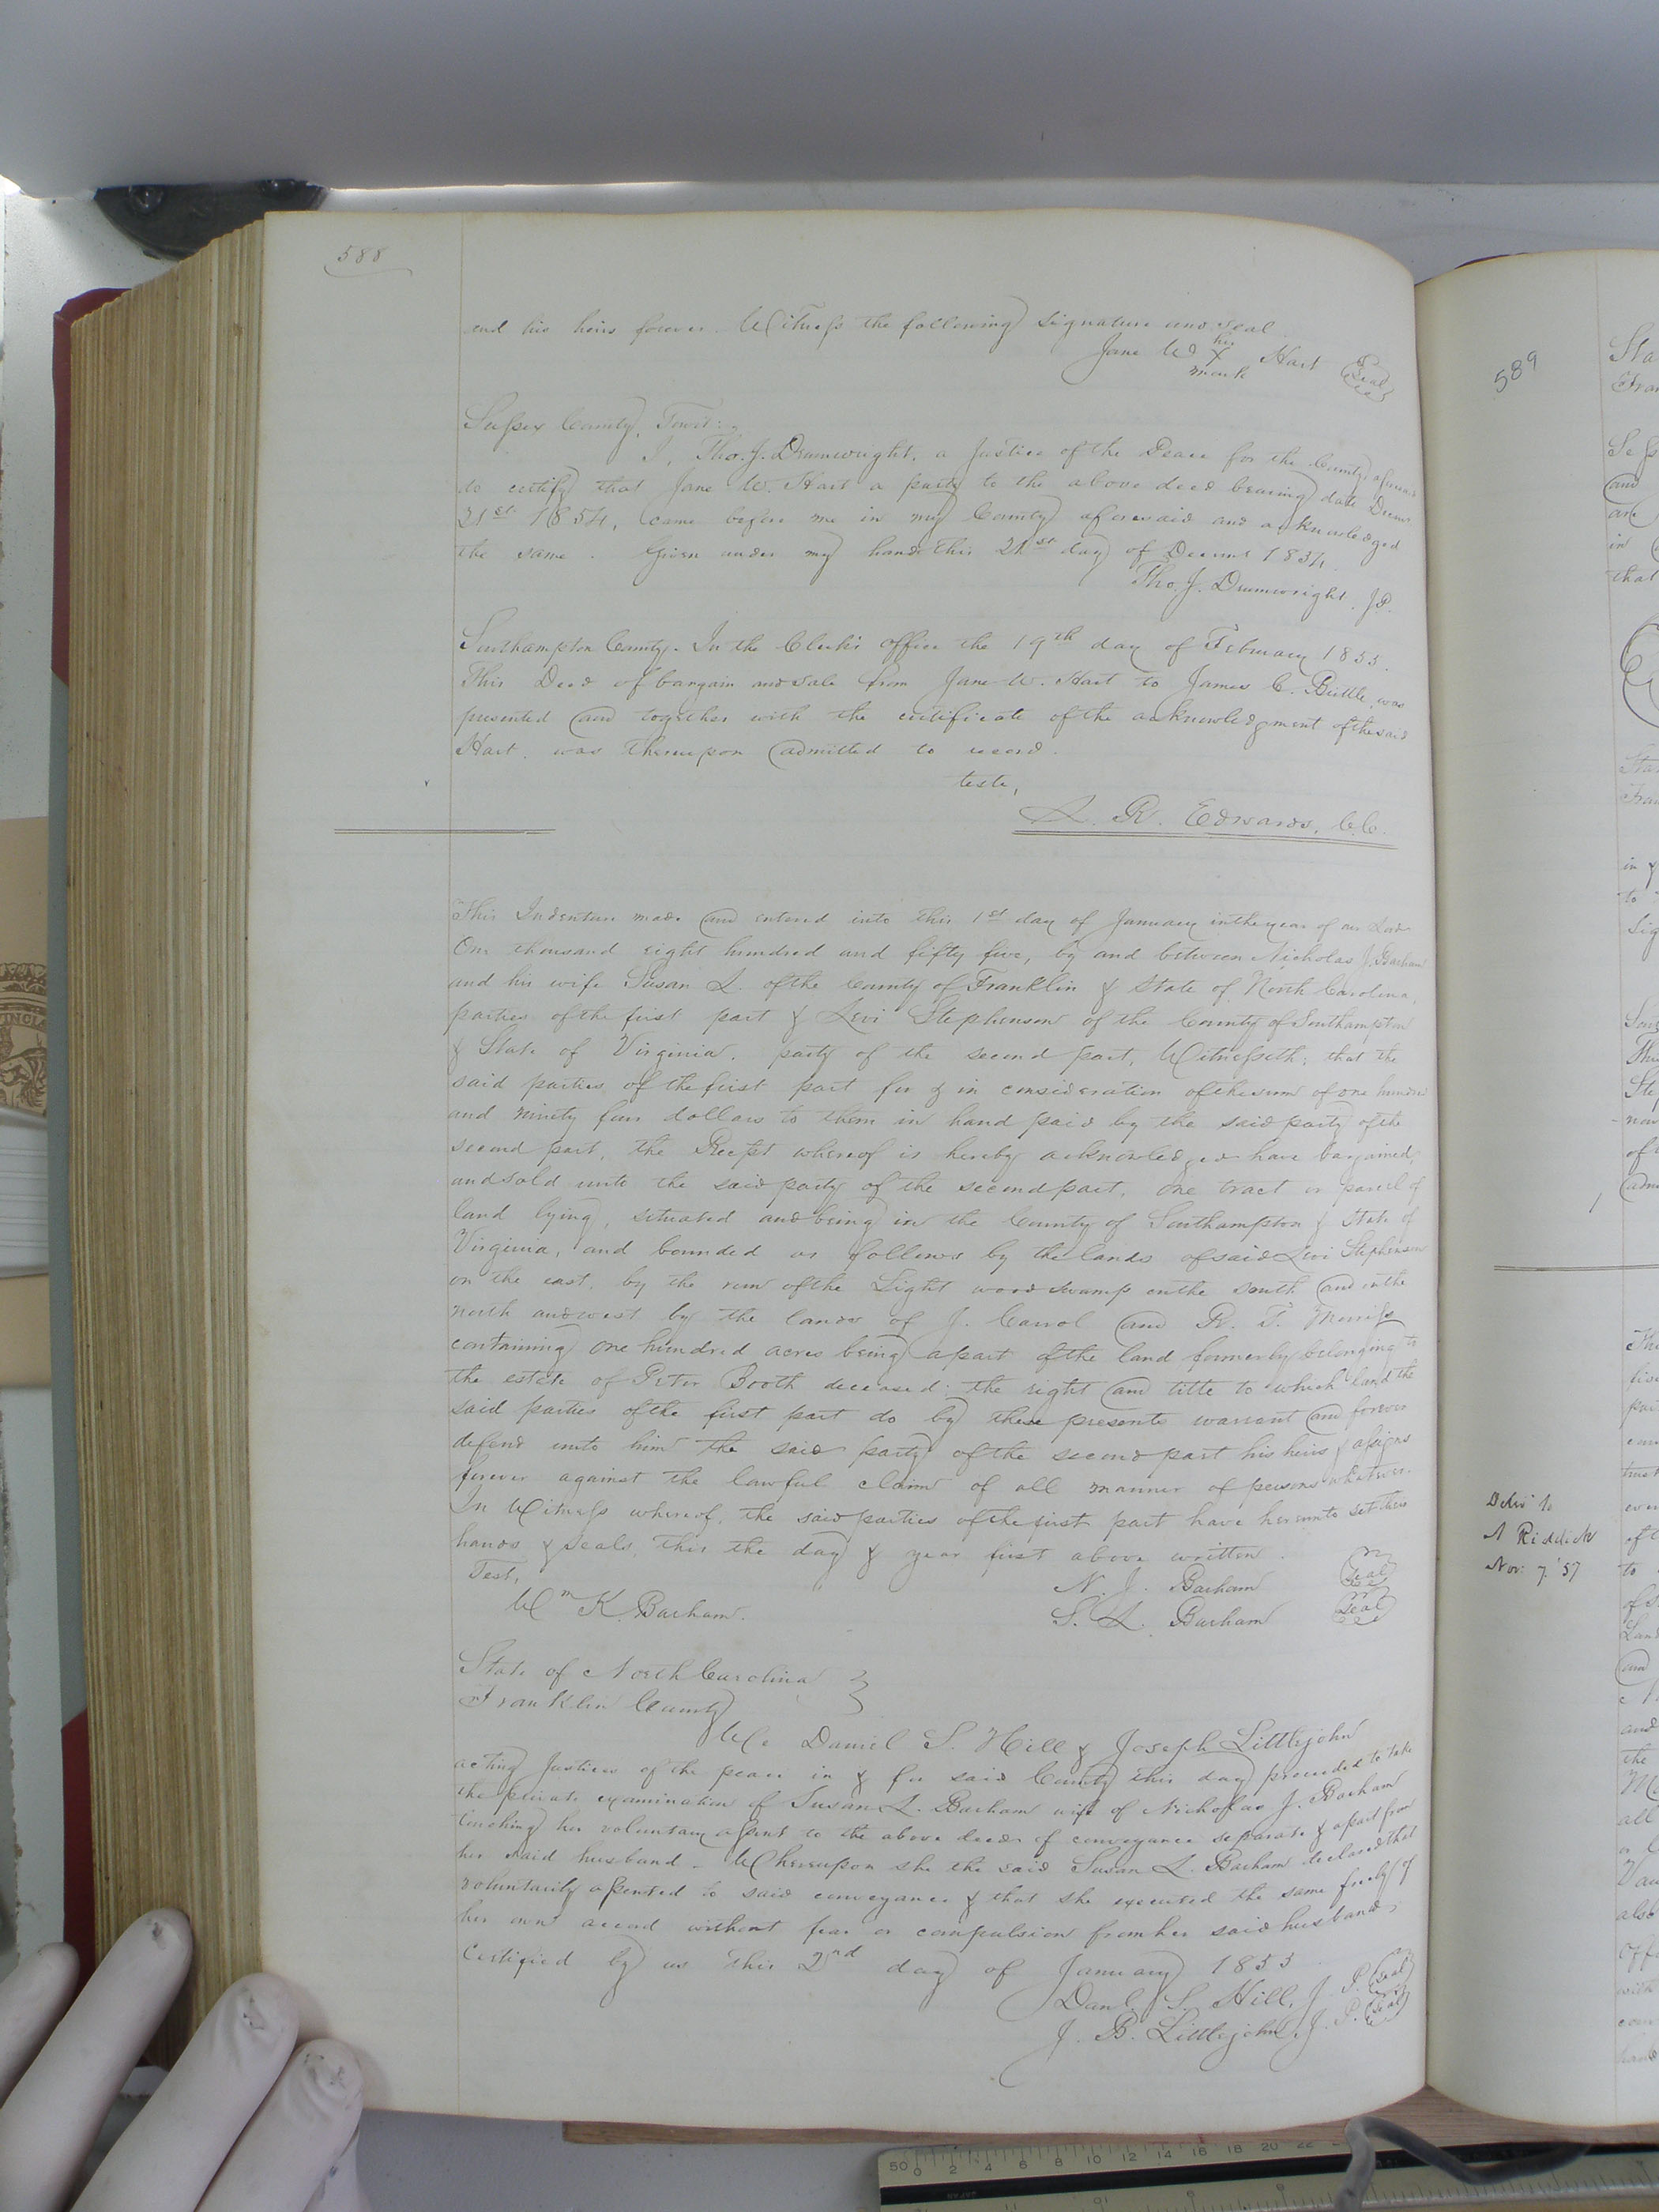 588
and his heirs forever. Witness the following signature and seal
his
Jane W X Hart Seal
mark
Sussex County, Towit:
I, Tho. J. Drumwright, a Justice of the Peace for the County aforesaid
do certify that Jane W. Hart a party to the above deed bearing date Decemr
21st 1854, came before me in my County aforesaid and acknowledged
the same. Given under my hand this 21st day of Decemr 1854.
Tho. J. Drumwright. J.P.
Southampton County. In the Clerk's office the 19th day of February 1855.
This Deed of bargain and sale from Jane W. Hart to James C. Bittle was
presented and together with the certificate of the acknowledgment of the said
Hart, was thereupon admitted to record.
teste,
L. R. Edwards, C.C.
This Indenture made and entered into this 1st day of January in the year of our Lord
One thousand eight hundred and fifty five, by and between Nicholas J. Barham
and his wife Susan L. of the County of Franklin & State of North Carolina,
parties of the first part & Levi Stephenson of the County of Southampton
& State of Virginia, party of the second part, Witnesseth; that the
said parties of the first part for & in consideration of the sum of one hundred
and ninety four dollars to them in hand paid by the said party of the
second part, the Recept whereof is hereby acknowledged have bargained
and sold unto the said party of the second part, one tract or parcel of
land lying, situated and being in the County of Southampton & State of
Virginia, and bounded as follows by the lands of said Levi Stephenson
on the east, by the run of the Light wood swamp on the south and on the
north and west by the lands of J. Carrol and R. T.
containing one hundred acres being a part of the land formerly belonging to
the estate of Peter Booth deceased: the right and title to which land the
said parties of the first part do by these presents warrant and forever
defend unto him the said party of the second part his heirs & assigns
forever against the lawful claim of all manner of persons whatever.
In Witness whereof, the said parties of the first part have hereunto set their
hands & seals, this the day & year first above written.
Test,
N. J. Barham seal
Wm K. Barham.
S. L. Barham seal
State of North Carolina
Franklin County
We Daniel S. Hill & Joseph Littlejohn
acting Justices of the peace in & for said County this day proceeded to take
the private examination of Susan L. Barham wife of Nicholas J. Barham
touching her voluntary assent to the above deed of conveyance separate & apart from
her said husband - Whereupon she the said Susan L. Barham declared that
voluntarily assented to said conveyance & that she executed the same freely of
her own accord without fear or compulsion from her said husband,
Certified by us this 2nd day of January 1855
Danl. S. Hill, J. P. Seal
J. B. Littlejohn, J. P. Seal
589
Sta
Fran
and
are
in
that
in &
to
Sig
Delivd to
A Riddick
Nov. 7. '57
50 0 2 4 6 8 10 12 14 16 18 20 22
JAPAN